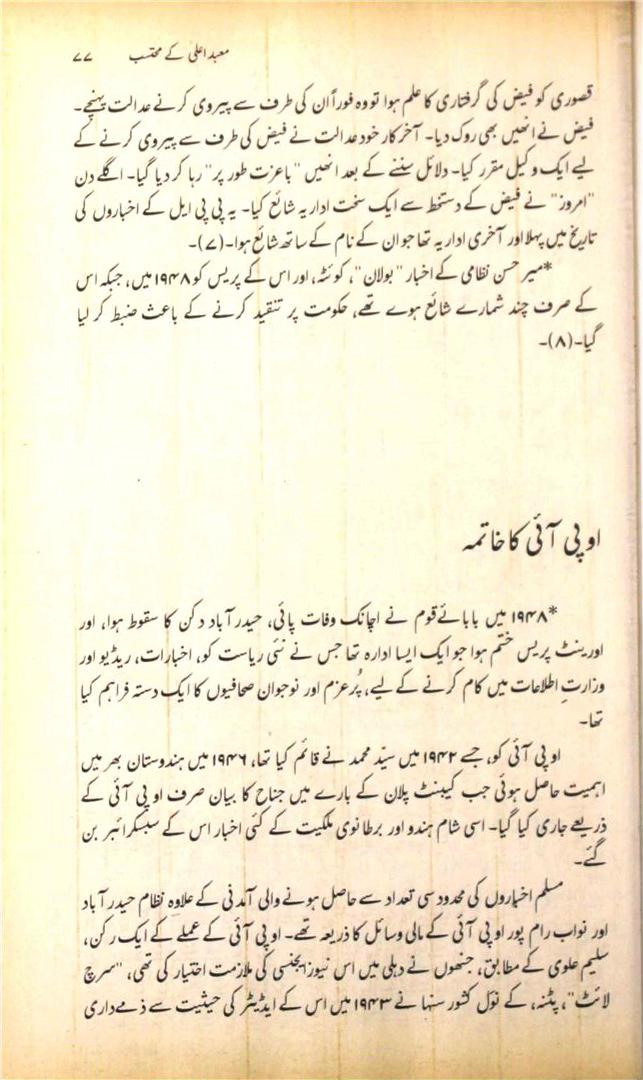 معبد اعلیٰ کے محتسب ۷۷
قصوری کو فیض کی گرفتاری کا علم ہوا تو وہ فوراً ان کی طرف سے پیروی کرنے عدالت پہنچے۔
فیض نے انھیں بھی روک دیا۔ آخرکار خود عدالت نے فیض کی طرف سے پیروی کرنے کے
لیے ایک وکیل مقرر کیا۔ دلائل سننے کے بعد انھیں "باعزت طور پر" رہا کر دیا گیا۔ اگلے دن
"امروز" نے فیض کے دستخط سے ایک سخت اداریہ شائع کیا۔ یہ پی پی ایل کے اخباروں کی
تاریخ میں پہلا اور آخری اداریہ تھا جو ان کے نام کے ساتھ شائع ہوا۔(۷)۔
*میر حسن نظامی کے اخبار "بولان"، کوئٹہ، اور اس کے پریس کو ۱۹۴۸ میں، جبکہ اس
کے صرف چند شمارے شائع ہوے تھے، حکومت پر تنقید کرنے کے باعث ضبط کر لیا
گیا۔(۸)۔
او پی آئی کا خاتمہ
*۱۹۴۸ میں بابائے قوم نے اچانک وفات پائی، حیدر آباد دکن کا سقوط ہوا، اور
اورینٹ پریس ختم ہوا جو ایک ایسا ادارہ تھا جس نے نئی ریاست کو، اخبارات، ریڈیو اور
وزارتِ اطلاعات میں کام کرنے کے لیے، پُرعزم اور نوجوان صحافیوں کا ایک دستہ فراہم کیا
تھا۔
او پی آئی کو، جسے ۱۹۴۲ میں سیّد محمد نے قائم کیا تھا، ۱۹۴۶ میں ہندوستان بھر میں
اہمیت حاصل ہوئی جب کیبنٹ پلان کے بارے میں جناح کا بیان صرف او پی آئی کے
ذریعے جاری کیا گیا۔ اسی شام ہندو اور برطانوی ملکیت کے کئی اخبار اس کے سبسکرائبر بن
گئے۔
مسلم اخباروں کی محدود سی تعداد سے حاصل ہونے والی آمدنی کے علاوہ نظام حیدر آباد
اور نواب رام پور او پی آئی کے مالی وسائل کا ذریعہ تھے۔ او پی آئی کے عملے کے ایک رکن،
سلیم علوی کے مطابق، جنھوں نے دہلی میں اس نیوز ایجنسی کی ملازمت اختیار کی تھی، "سرچ
لائٹ"، پٹنہ، کے نول کشور سنہا نے ۱۹۴۳ میں اس کے ایڈیٹر کی حیثیت سے ذمے داری